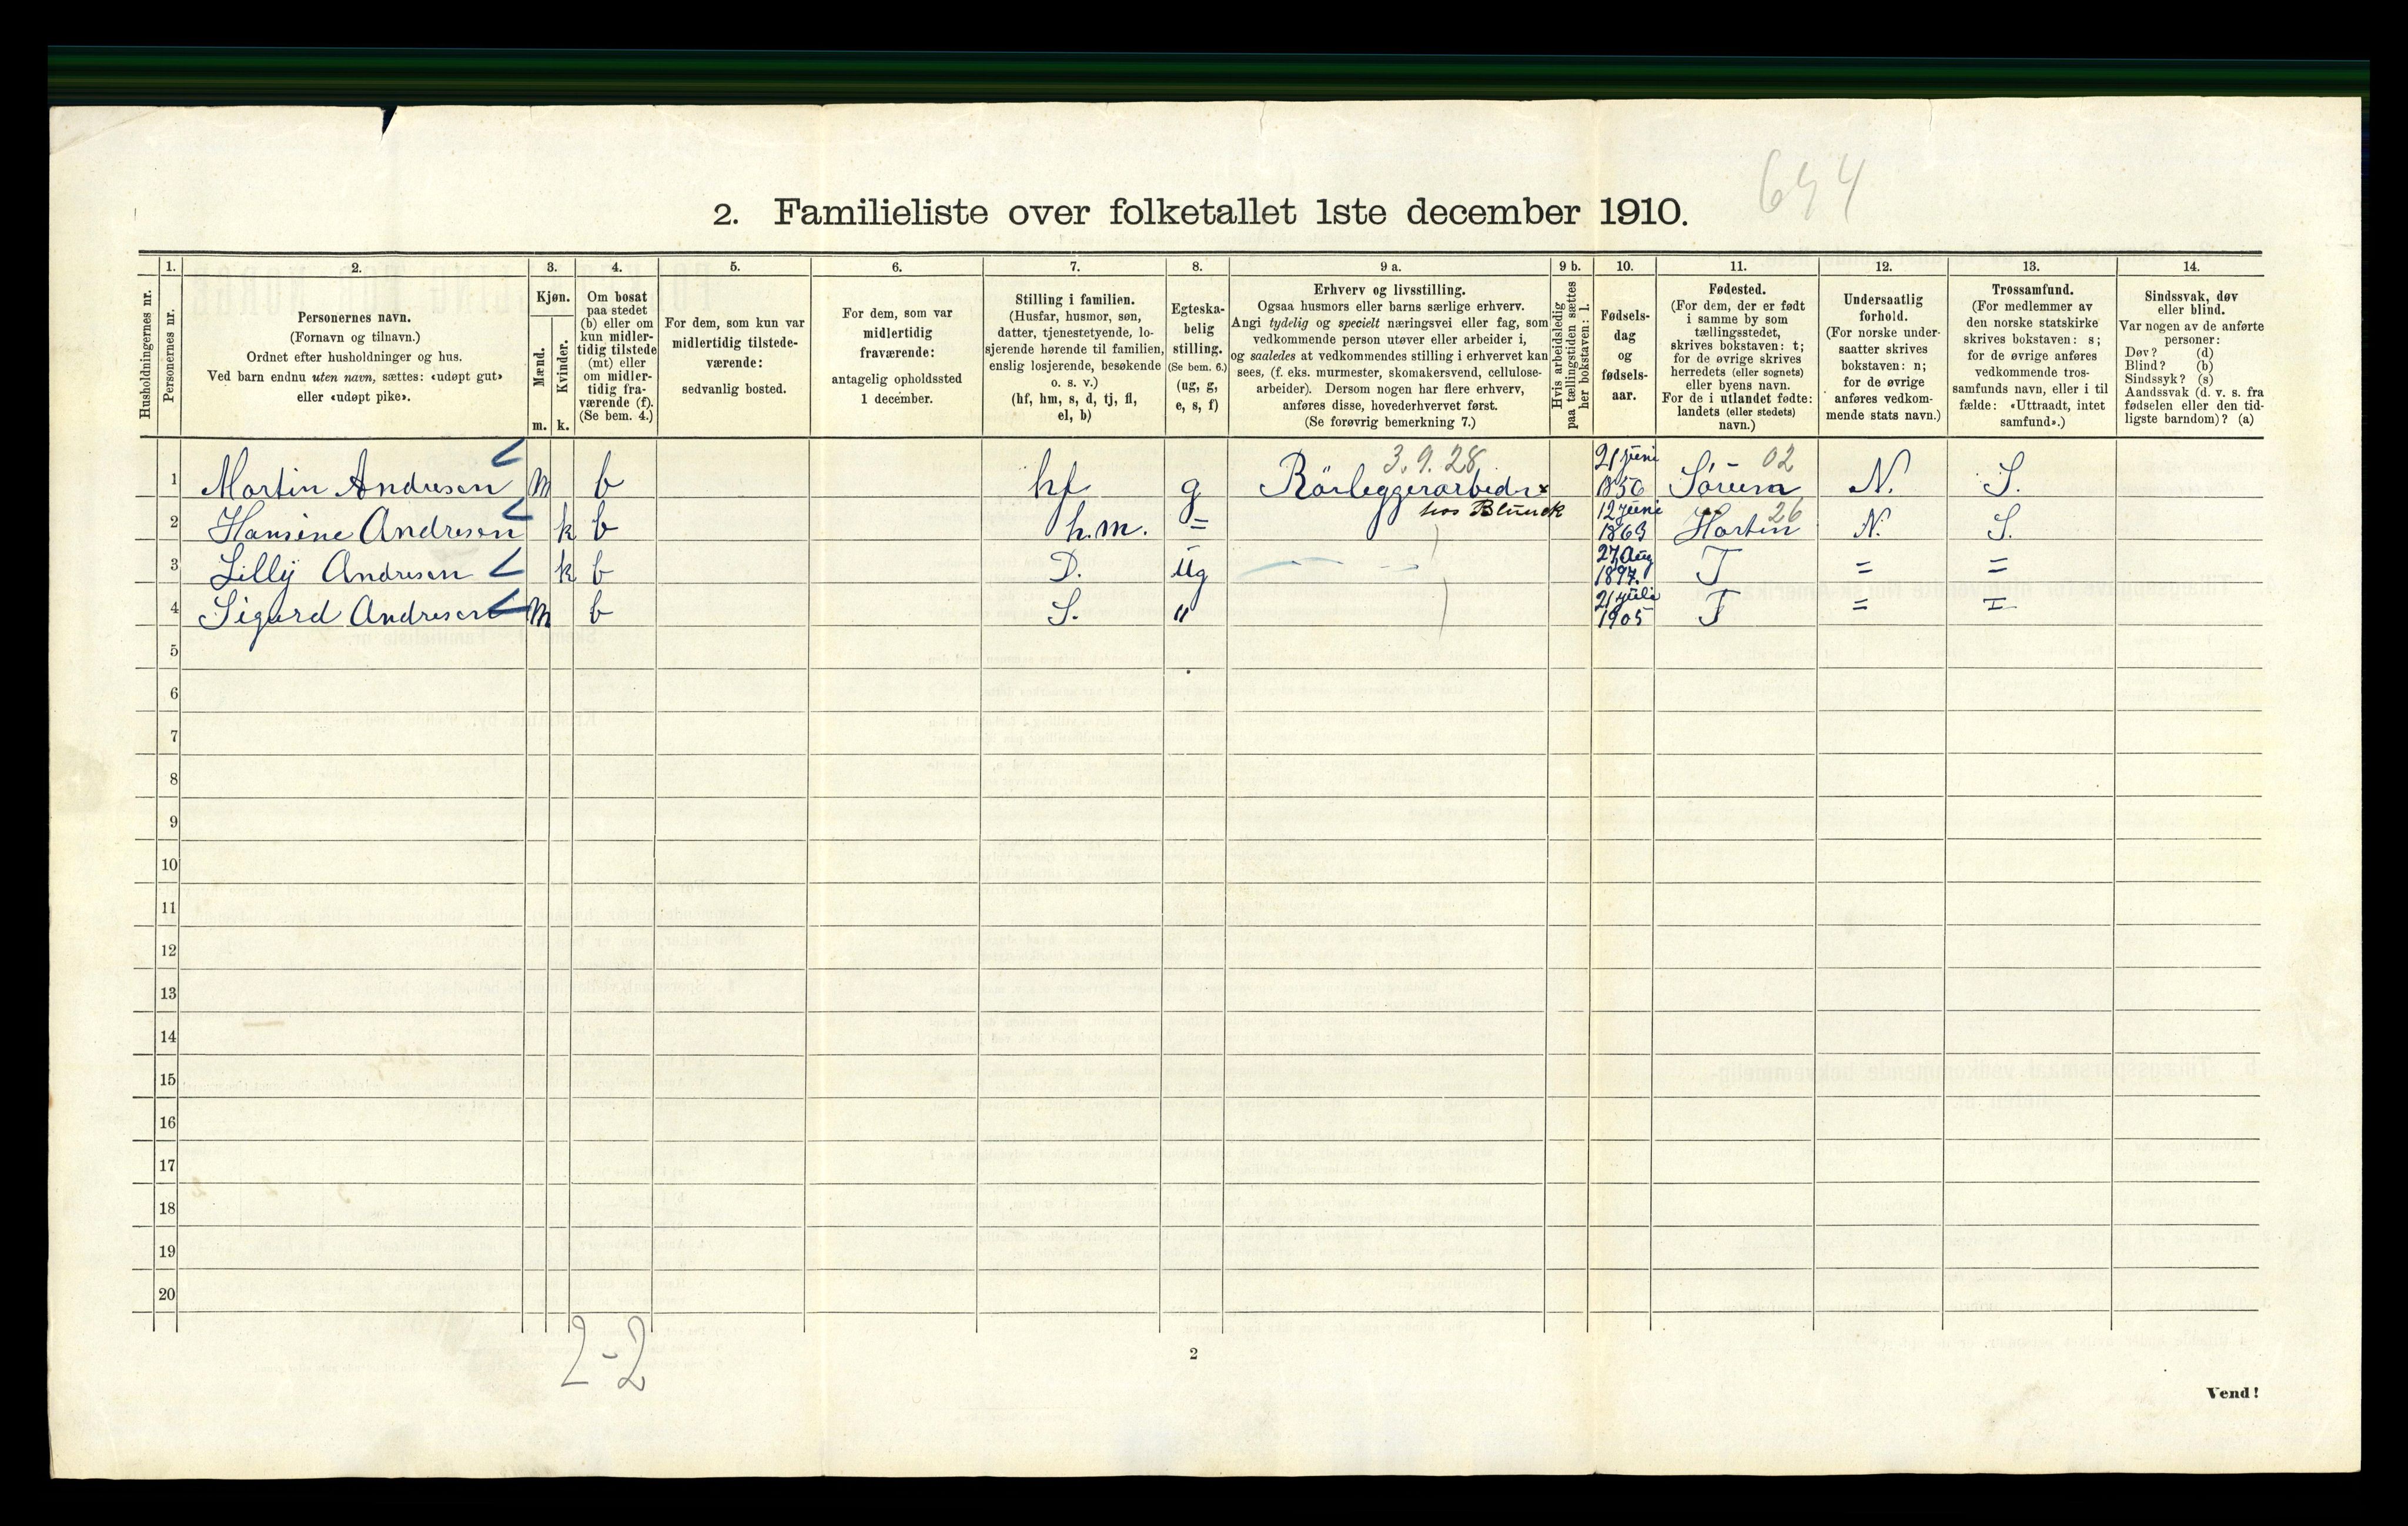 644
2. Familieliste over folketallet 1ste december 1910.
Husholdningernes nr.
1.
Personernes nr.
2.
Personernes navn.
(Fornavn og tilnavn.)
Ordnet efter husholdninger og hus.
Ved barn endnu uten navn, sættes: «udøpt gut»
eller «udøpt pike».
3.
Kjøn.
Mænd.
Kvinder.
m. k.
4.
Om bosat
paa stedet
(b) eller om
kun midler-
tidig tilstede
(mt) eller
om midler-
tidig fra-
værende (f).
(Se bem. 4.)
5.
For dem, som kun var
midlertidig tilstede-
værende:
sedvanlig bosted.
6.
For dem, som var
midlertidig
fraværende:
antagelig opholdssted
1 december.
7.
Stilling i familien.
(Husfar, husmor, søn,
datter, tjenestetyende, lo-
sjerende hørende til familien,
enslig losjerende, besøkende
o. s. v.)
(hf, hm, s, d, tj, fl,
el, b)
8.
Egteska-
belig
stilling.
(Se bem. 6.)
(ug, g,
e, s, f)
9 a.
Erhverv og livsstilling.
Ogsaa husmors eller barns særlige erhverv.
Angi tydelig og specielt næringsvei eller fag, som
vedkommende person utøver eller arbeider i,
og saaledes at vedkommendes stilling i erhvervet kan
sees, (f. eks. murmester, skomakersvend, cellulose-
arbeider). Dersom nogen har flere erhverv,
anføres disse, hovederhvervet først.
(Se forøvrig bemerkning 7.)
9 b.
Hvis arbeidsledig
paa tællingstiden sættes
her bokstaven: l.
10.
Fødsels-
dag
og
fødsels-
aar.
11.
Fødested.
(For dem, der er født
i samme by som
tællingsstedet,
skrives bokstaven: t;
for de øvrige skrives
herredets (eller sognets)
eller byens navn.
For de i utlandet fødte:
landets (eller stedets)
navn.)
12.
Undersaatlig
forhold.
(For norske under-
saatter skrives
bokstaven: n;
for de øvrige
anføres vedkom-
mende stats navn.)
13.
Trossamfund.
(For medlemmer av
den norske statskirke
skrives bokstaven: s;
for de øvrige anføres
vedkommende tros-
samfunds navn, eller i til
fælde: «Uttraadt, intet
samfund».)
14.
Sindssvak, døv
eller blind.
Var nogen av de anførte
personer:
Døv? (d)
Blind? (b)
Sindssyk? (s)
Aandssvak (d. v. s. fra
fødselen eller den tid-
ligste barndom)? (a)
1 Martin Andresen m b hf g 3.9.28 Rörleggerarbeider x hos Blunck 21 juni 1850 Sørum 02 N. S.
2 Hansine Andresen k b h.m. = 12 juni 1863 Horten 26 N. S.
3 Lilly Andresen k b D. ug 27 Aug 1897. T = =
4 Sigurd Andresen m b S. " 21 juli 1905 T = =
5
6
7
8
9
10
11
12
13
14
15
16
17
18
19
20
2-2
2
Vend!